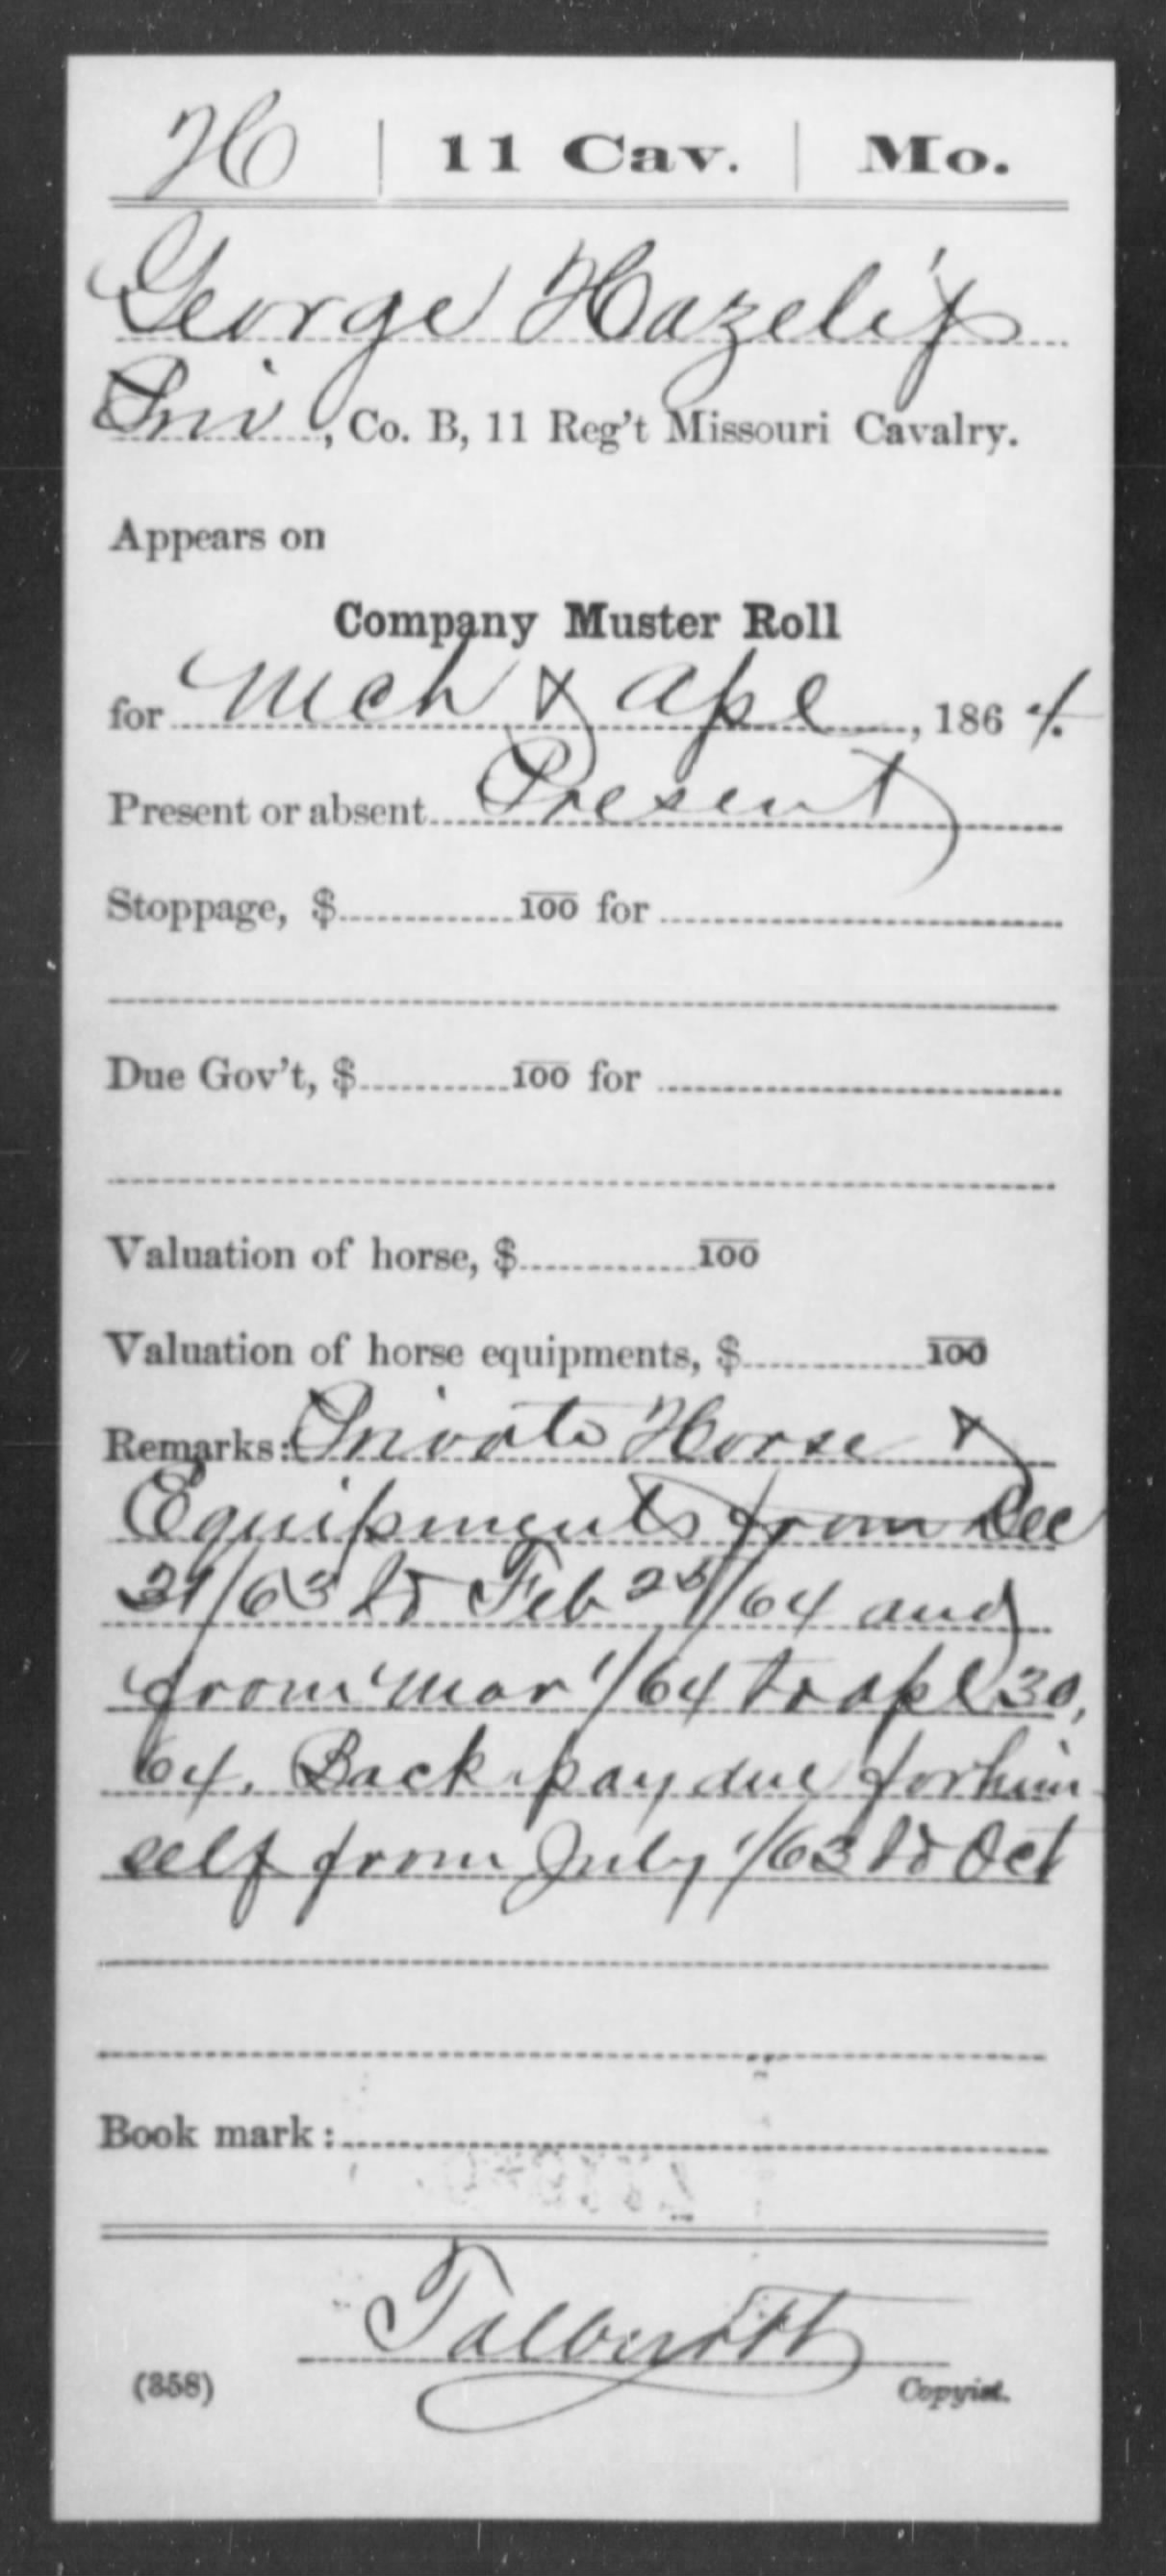 H | 11 Cav. | Mo.
George Hazelip
Priv, Co. B, 11 Reg't Missouri Cavalry.
Appears on
Company Muster Roll
for Mch & Apl, 1864.
Present or absent Present
Stoppage, $ 100 for
Due Gov't, $ 100 for
Valuation of horse, $ 100
Valuation of horse equipments, $ 100
Remarks: Private Horse &
Equipments from Dec
31/63 to Feb 25/64 and
from Mar 1/64 to Apl 30,
64. Back pay due for him
self from July 1/63 to Oct
Book mark:
(358)
Copyist.